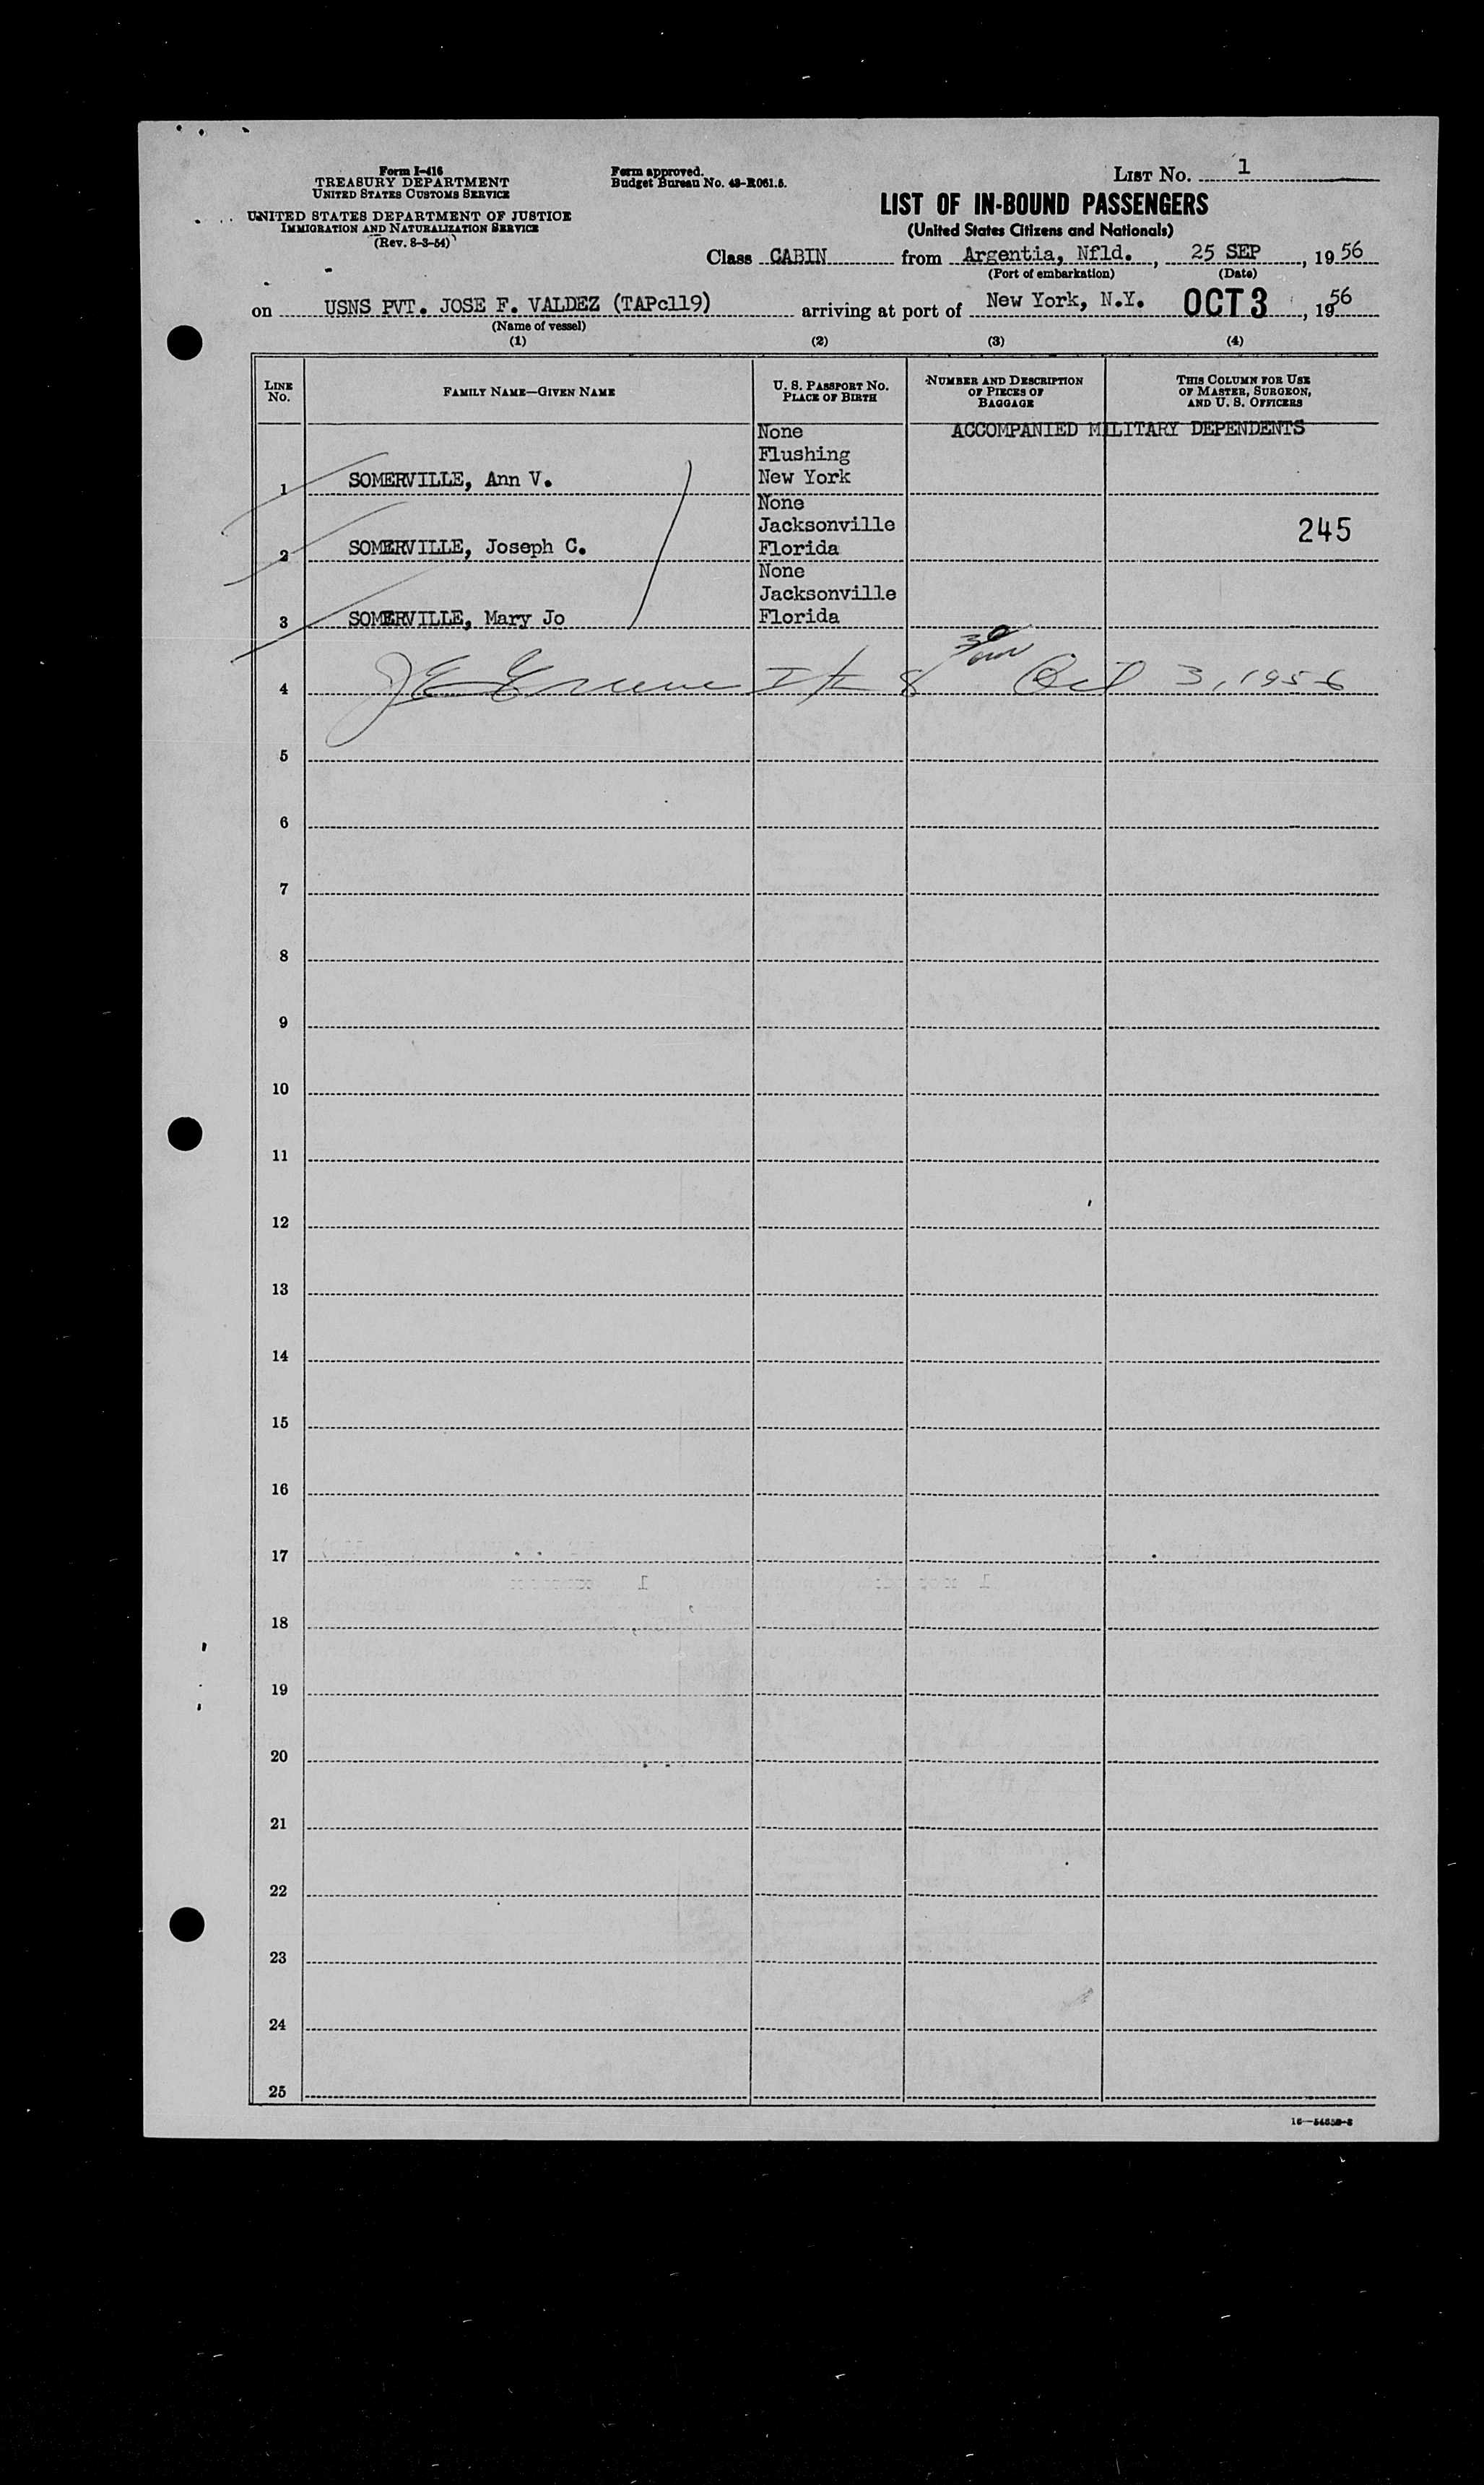 Form I-416
TREASURY DEPARTMENT
UNITED STATES CUSTOMS SERVICE
UNITED STATES DEPARTMENT OF JUSTICE
IMMIGRATION AND NATURALIZATION SERVICE
(Rev. 8-3-54)
Form approved.
Budget Bureau No. 43-R061.5.
LIST No. 1
LIST OF IN-BOUND PASSENGERS
(United States Citizens and Nationals)
Class CABIN from Argentia, Nfld., 25 SEP, 1956
(Port of embarkation) (Date)
on USNS PVT. JOSE F. VALDEZ (TAPc119) arriving at port of New York, N.Y. OCT 3, 1956
(Name of vessel)
(1) (2) (3) (4)
LINE No.
FAMILY NAME—GIVEN NAME
U. S. PASSPORT NO.
PLACE OF BIRTH
NUMBER AND DESCRIPTION OF PIECES OF BAGGAGE
THIS COLUMN FOR USE OF MASTER, SURGEON, AND U. S. OFFICERS
ACCOMPANIED MILITARY DEPENDENTS
None
Flushing
1 SOMERVILLE, Ann V. New York
None
Jacksonville
245
2 SOMERVILLE, Joseph C. Florida
None
Jacksonville
3 SOMERVILLE, Mary Jo Florida
4 Oct 3, 1956
5
6
7
8
9
10
11
12
13
14
15
16
17
18
19
20
21
22
23
24
25